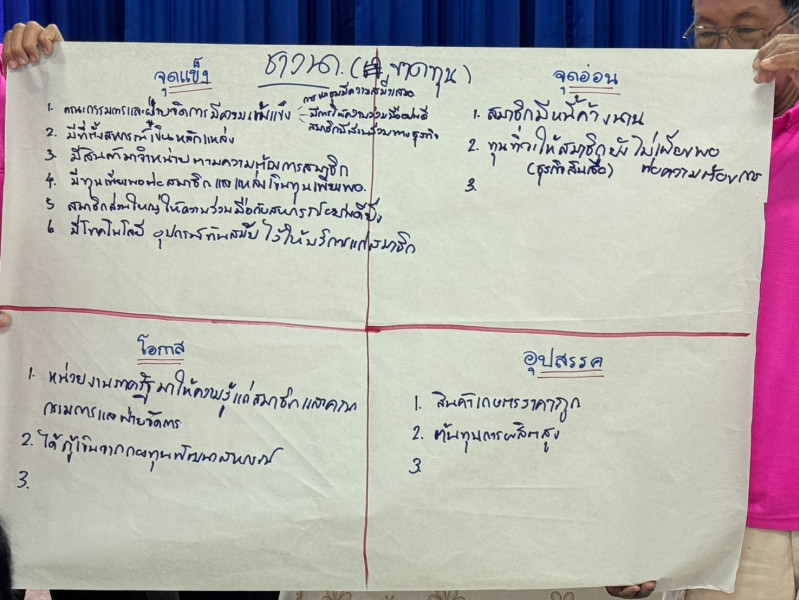 ชาวนา. (ขาดทุน)
จุดแข็ง
1. คณะกรรมการและฝ่ายจัดการมีความเข้มแข็ง
การประชุมมีความสม่ำเสมอ
มีการให้ความร่วมมืออย่างดี
สมาชิกมีส่วนร่วมทางธุรกิจ
2. มีที่ตั้งสหกรณ์เป็นหลักแหล่ง
3. มีสินค้ามาจำหน่ายตามความต้องการสมาชิก
4. มีทุนเพียงพอต่อสมาชิกและแหล่งเงินทุนเพียงพอ.
5 สมาชิกส่วนใหญ่ให้ความร่วมมือกับสหกรณ์อย่างดียิ่ง
6 มีเทคโนโลยี อุปกรณ์ทันสมัย ไว้ให้บริการแก่สมาชิก
จุดอ่อน
1. สมาชิกมีหนี้ค้างนาน
2. ทุนที่จะให้สมาชิกยังไม่เพียงพอ
(ธุรกิจสินเชื่อ) ต่อความต้องการ
3.
โอกาส
1. หน่วยงานภาครัฐมาให้ความรู้แก่สมาชิกและคณะ
กรรมการและฝ่ายจัดการ
2. ได้กู้เงินจากกองทุนพัฒนาสหกรณ์
3.
อุปสรรค
1. สินค้าเกษตรราคาถูก
2. ต้นทุนการผลิตสูง
3.